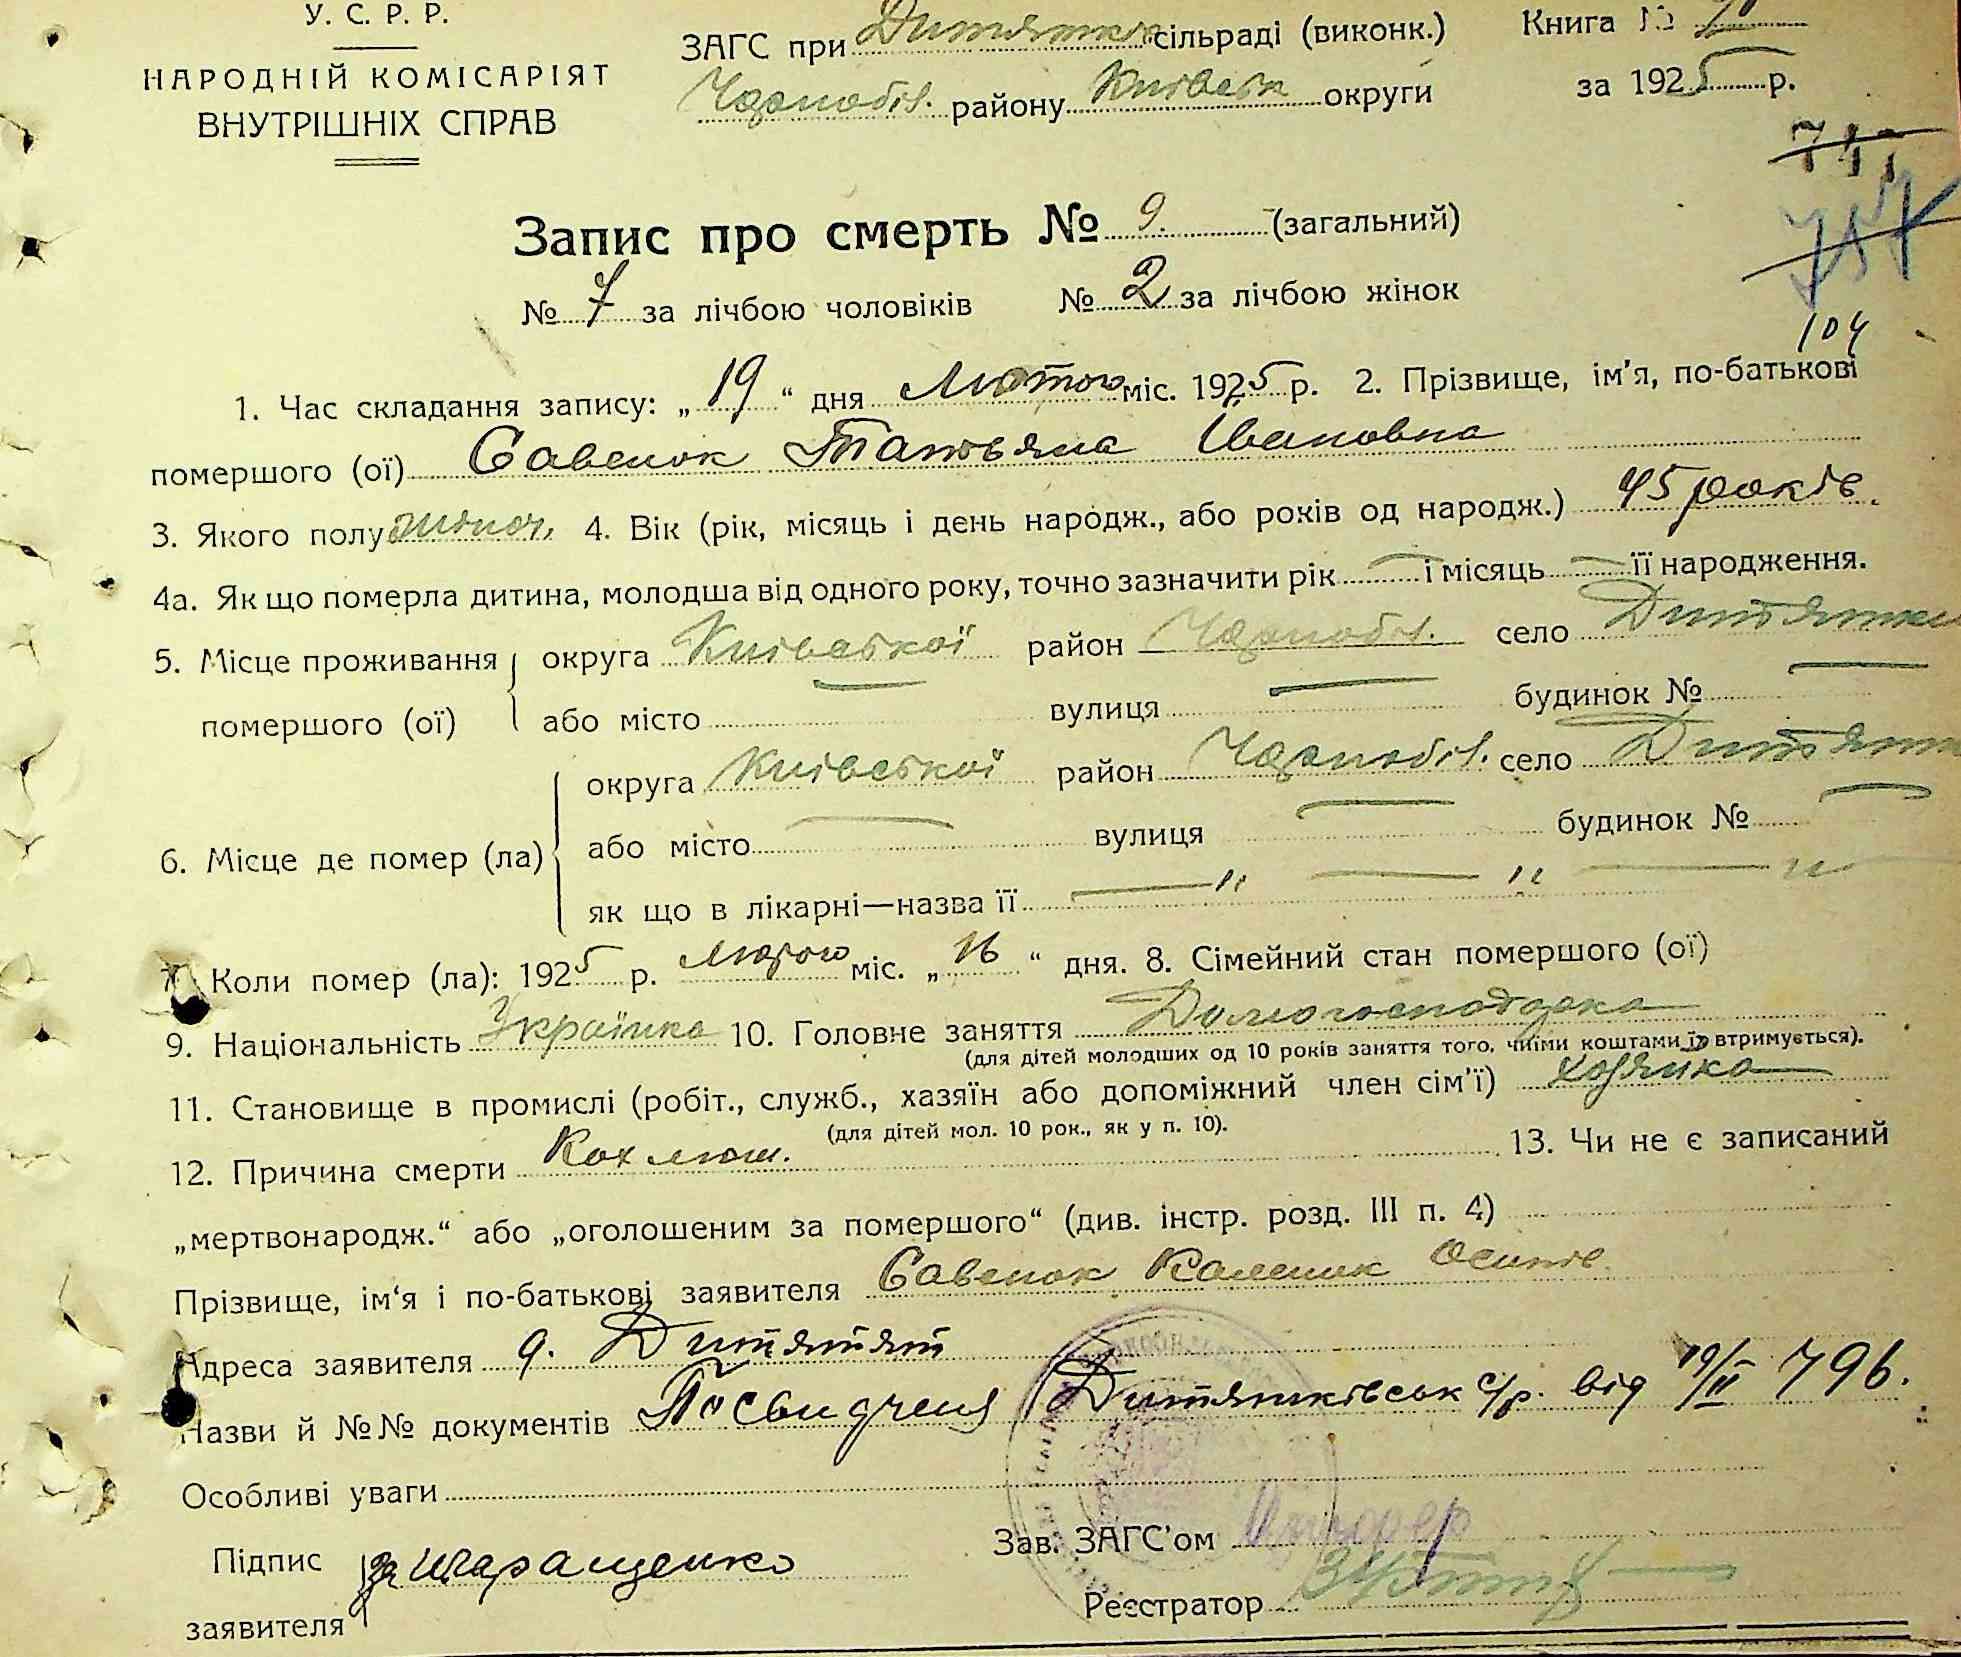 У. С. Р. Р.
НАРОДНІЙ КОМІСАРІЯТ
ВНУТРІШНІХ СПРАВ
ЗАГС при Дитятк. сільраді (виконк.)
Книга №
Чорнобіл. району Київськ округи
за 1925 р.
747
757
104
Запис про смерть № 9. (загальний)
№ 7 за лічбою чоловіків № 2 за лічбою жінок
1. Час складання запису: „19“ дня Лютого міс. 1925 р. 2. Прізвище, ім'я, по-батькові
помершого (ої) Савенок Татьяна Івановна
3. Якого полу жіноч. 4. Вік (рік, місяць і день народж., або років од народж.) 45 років.
4а. Як що померла дитина, молодша від одного року, точно зазначити рік — і місяць — її народження.
5. Місце проживання помершого (ої)
округа Київської район Чорнобіл. село Дитятки
або місто — вулиця — будинок № —
6. Місце де помер (ла)
округа Київської район Чорнобіл. село Дитятк
або місто — вулиця — будинок № —
як що в лікарні—назва її — „ — „ — „
7. Коли помер (ла): 1925 р. Лютого міс. „16“ дня. 8. Сімейний стан помершого (ої)
9. Національність Українка 10. Головне заняття Домогосподарка
(для дітей молодших од 10 років заняття того, чиїми коштами їх втримується).
11. Становище в промислі (робіт., служб., хазяїн або допоміжний член сім'ї) хозяйка
(для дітей мол. 10 рок., як у п. 10).
12. Причина смерти 13. Чи не є записаний
„мертвонародж.“ або „оголошеним за помершого“ (див. інстр. розд. III п. 4)
Прізвище, ім'я і по-батькові заявителя Савенок Каленик Осипов.
Адреса заявителя с. Дитятят
Назви й №№ документів Посвидченя Дитятківськ с/р. від 19/II 796.
Особливі уваги
Підпис заявителя за
Зав. ЗАГС'ом
Реєстратор